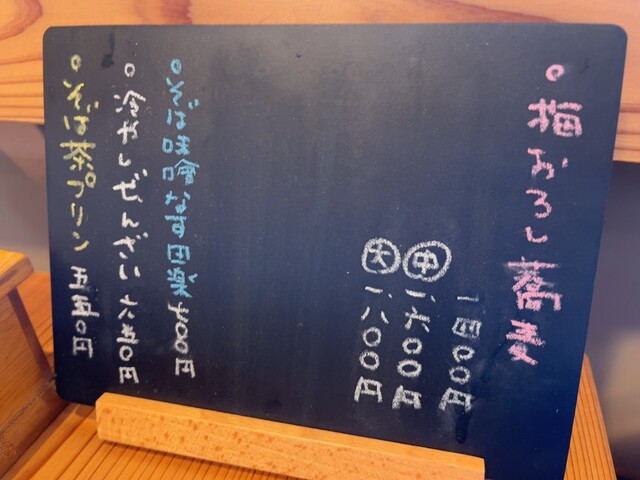 ○梅おろし蕎麦
一四〇〇円
㊥一六〇〇円
㊛一八〇〇円
○そば味噌なす田楽 七〇〇円
○冷やしぜんざい 六五〇円
○そば茶プリン 五五〇円